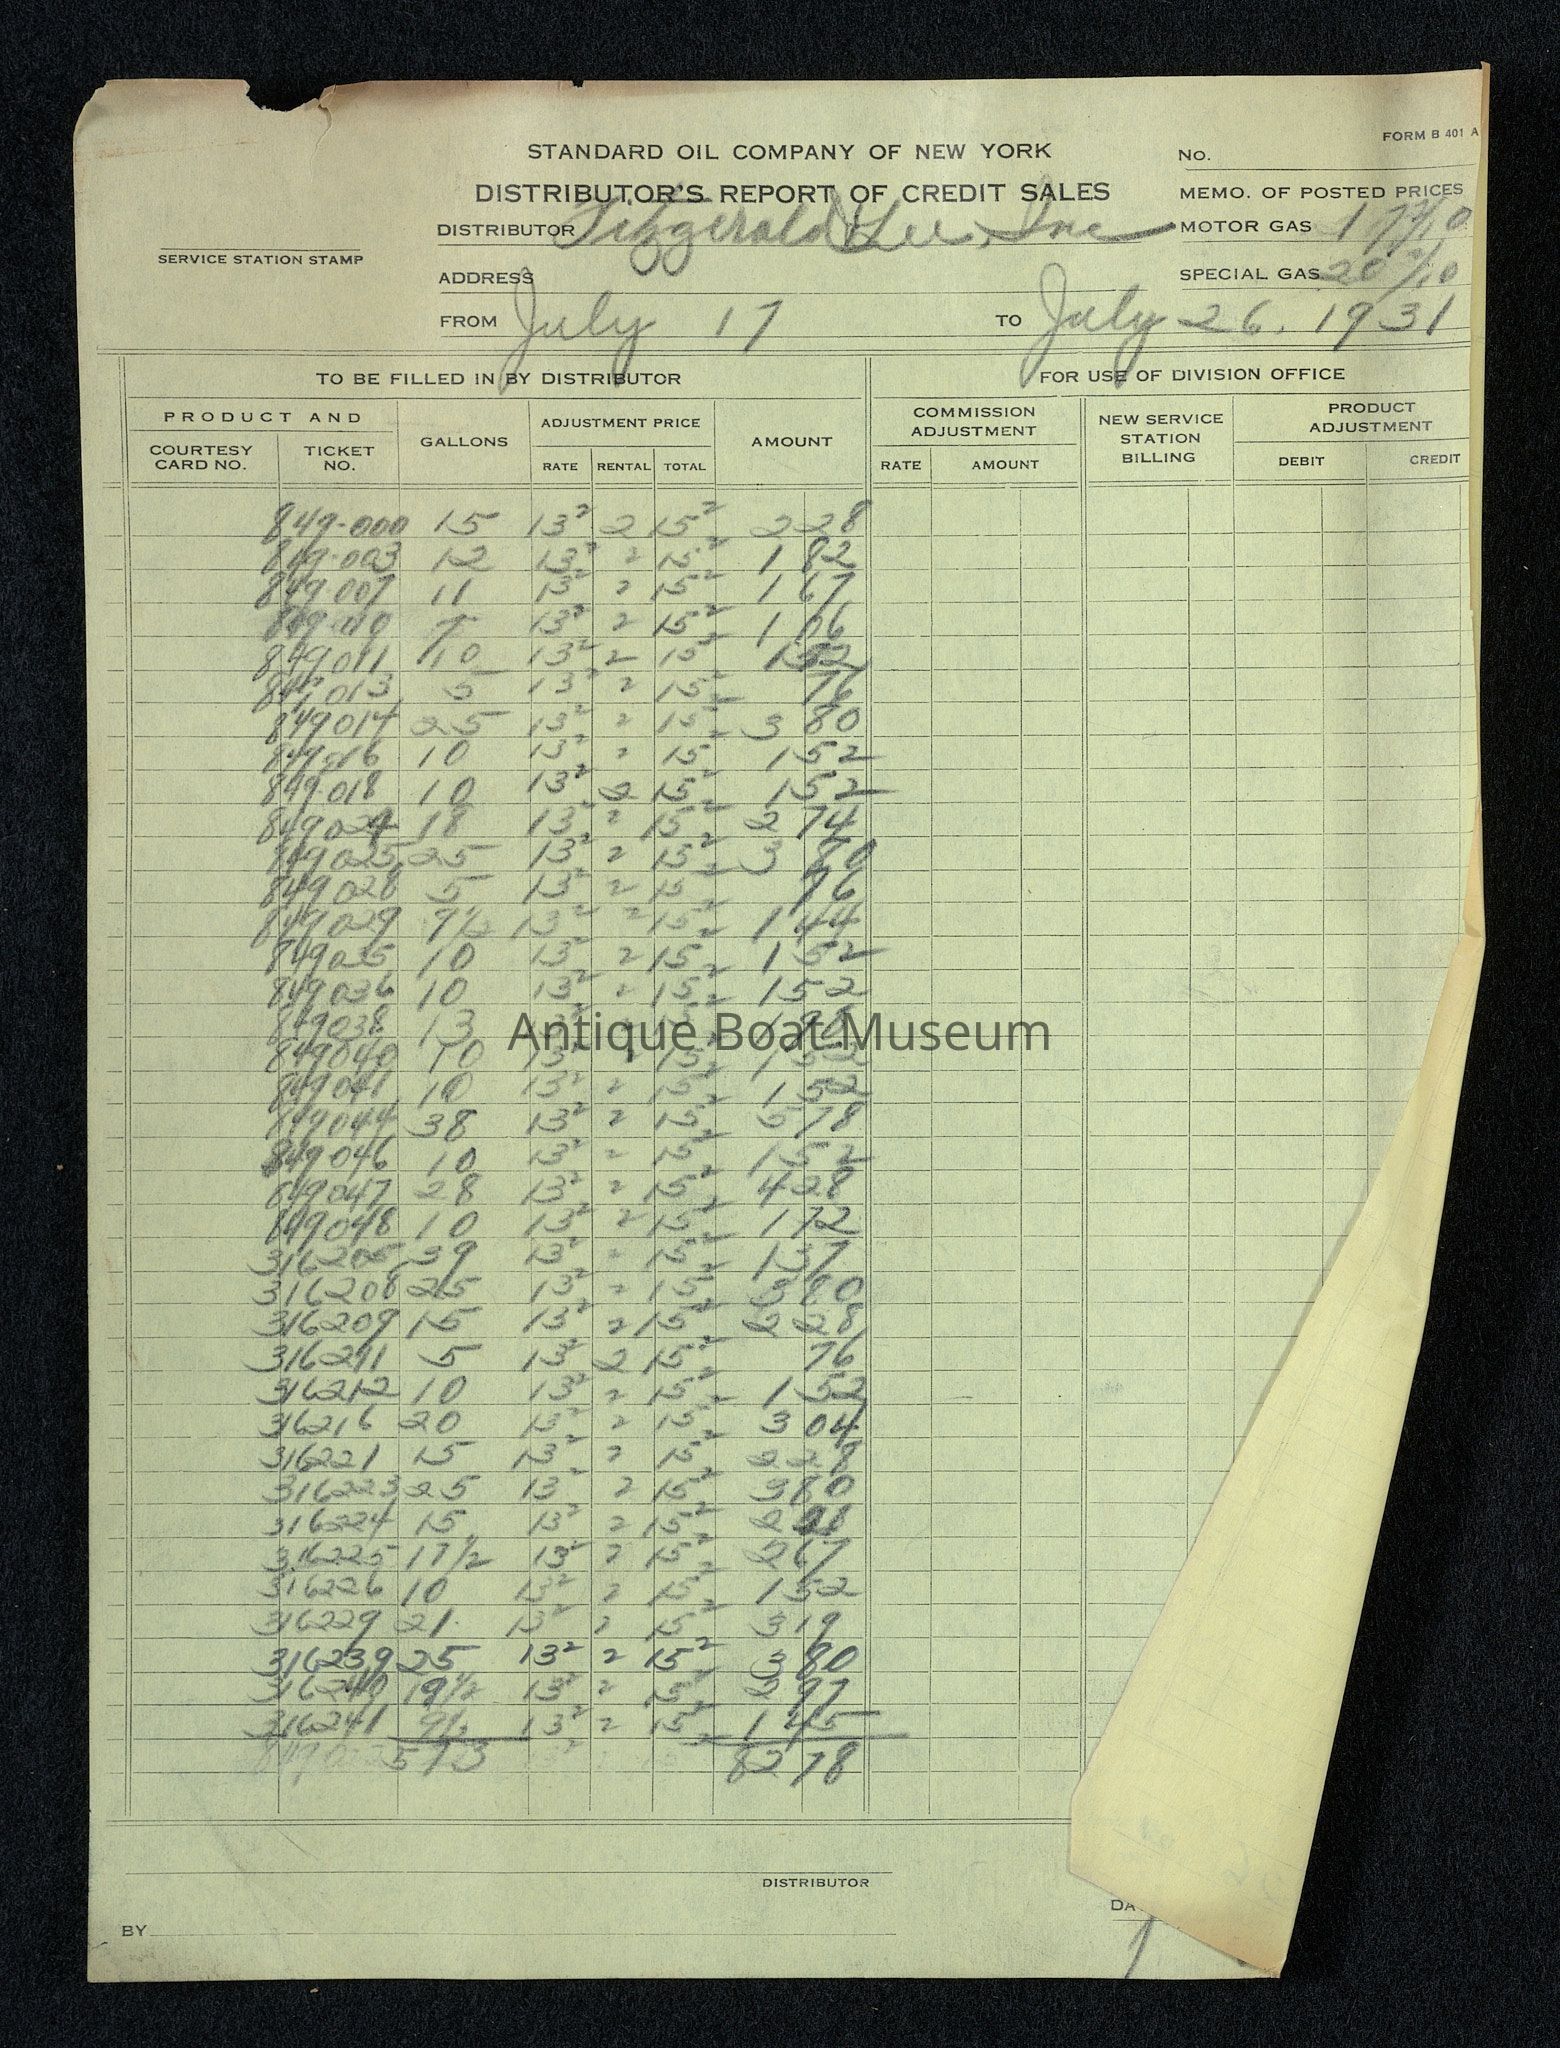 FORM B 401 A
STANDARD OIL COMPANY OF NEW YORK
No.
DISTRIBUTOR'S REPORT OF CREDIT SALES
MEMO. OF POSTED PRICES
DISTRIBUTOR Fitzgerald & Lee, Inc
MOTOR GAS
SERVICE STATION STAMP
ADDRESS
SPECIAL GAS 20 2/10
FROM July 17 TO July 26, 1931
TO BE FILLED IN BY DISTRIBUTOR FOR USE OF DIVISION OFFICE
PRODUCT AND
COURTESY CARD NO. TICKET NO. GALLONS ADJUSTMENT PRICE RATE RENTAL TOTAL AMOUNT COMMISSION ADJUSTMENT RATE AMOUNT NEW SERVICE STATION BILLING PRODUCT ADJUSTMENT DEBIT CREDIT
849-000 15 13² 2 15² 2 28
849-003 12 13² 2 15² 1 82
849-007 11 13² 2 15² 1 67
7 13² 2 15² 1 06
849011 10 13² 2 15² 1 52
849013 5 13² 2 15² 76
849014 25 13² 2 15² 3 80
849016 10 13² 2 15² 1 52
849018 10 13² 2 15² 1 52
849024 18 13² 2 15² 2 74
849025 25 13² 2 15² 3 80
849028 5 13² 2 15² 76
849029 9½ 13² 2 15² 1 44
849035 10 13² 2 15² 1 52
849036 10 13² 2 15² 1 52
849038 13 13² 2 15² 1 98
Antique Boat Museum
849040 10 13² 2 15² 1 52
849041 10 13² 2 15² 1 52
849044 38 13² 2 15² 5 78
849046 10 13² 2 15² 1 52
849047 28 13² 2 15² 4 28
849048 10 13² 2 15² 1 72
316205 39 13² 2 15² 1 37
316208 25 13² 2 15² 3 80
316209 15 13² 2 15² 2 28
316211 5 13² 2 15² 76
316212 10 13² 2 15² 1 52
316216 20 13² 2 15² 3 04
316221 15 13² 2 15² 2 28
316223 25 13² 2 15² 3 80
316224 15 13² 2 15² 2 28
316225 17½ 13² 2 15² 2 67
316226 10 13² 2 15² 1 52
316229 21 13² 2 15² 3 19
316239 25 13² 2 15² 3 80
316240 19½ 13² 2 15² 2 97
316241 9½ 13² 2 15² 1 45
573 82 78
DISTRIBUTOR
DA
BY